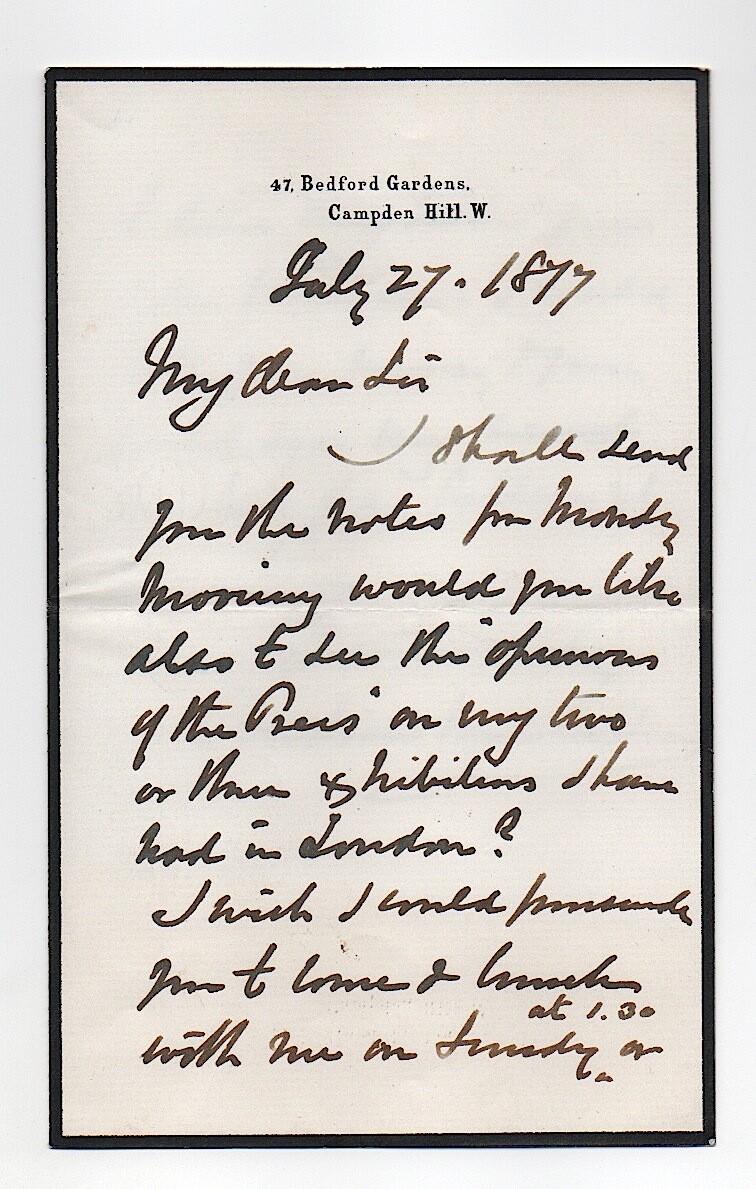 47, Bedford Gardens,
Campden Hill. W.
July 27. 1877
My dear Sir
I shall send
you the notes for Monday
Morning would you like
also to see the "opinions
of the Press" on my two
or three exhibitions I have
had in London?
I wish I could persuade
you to come & lunch
at 1.30
with me on Sunday or